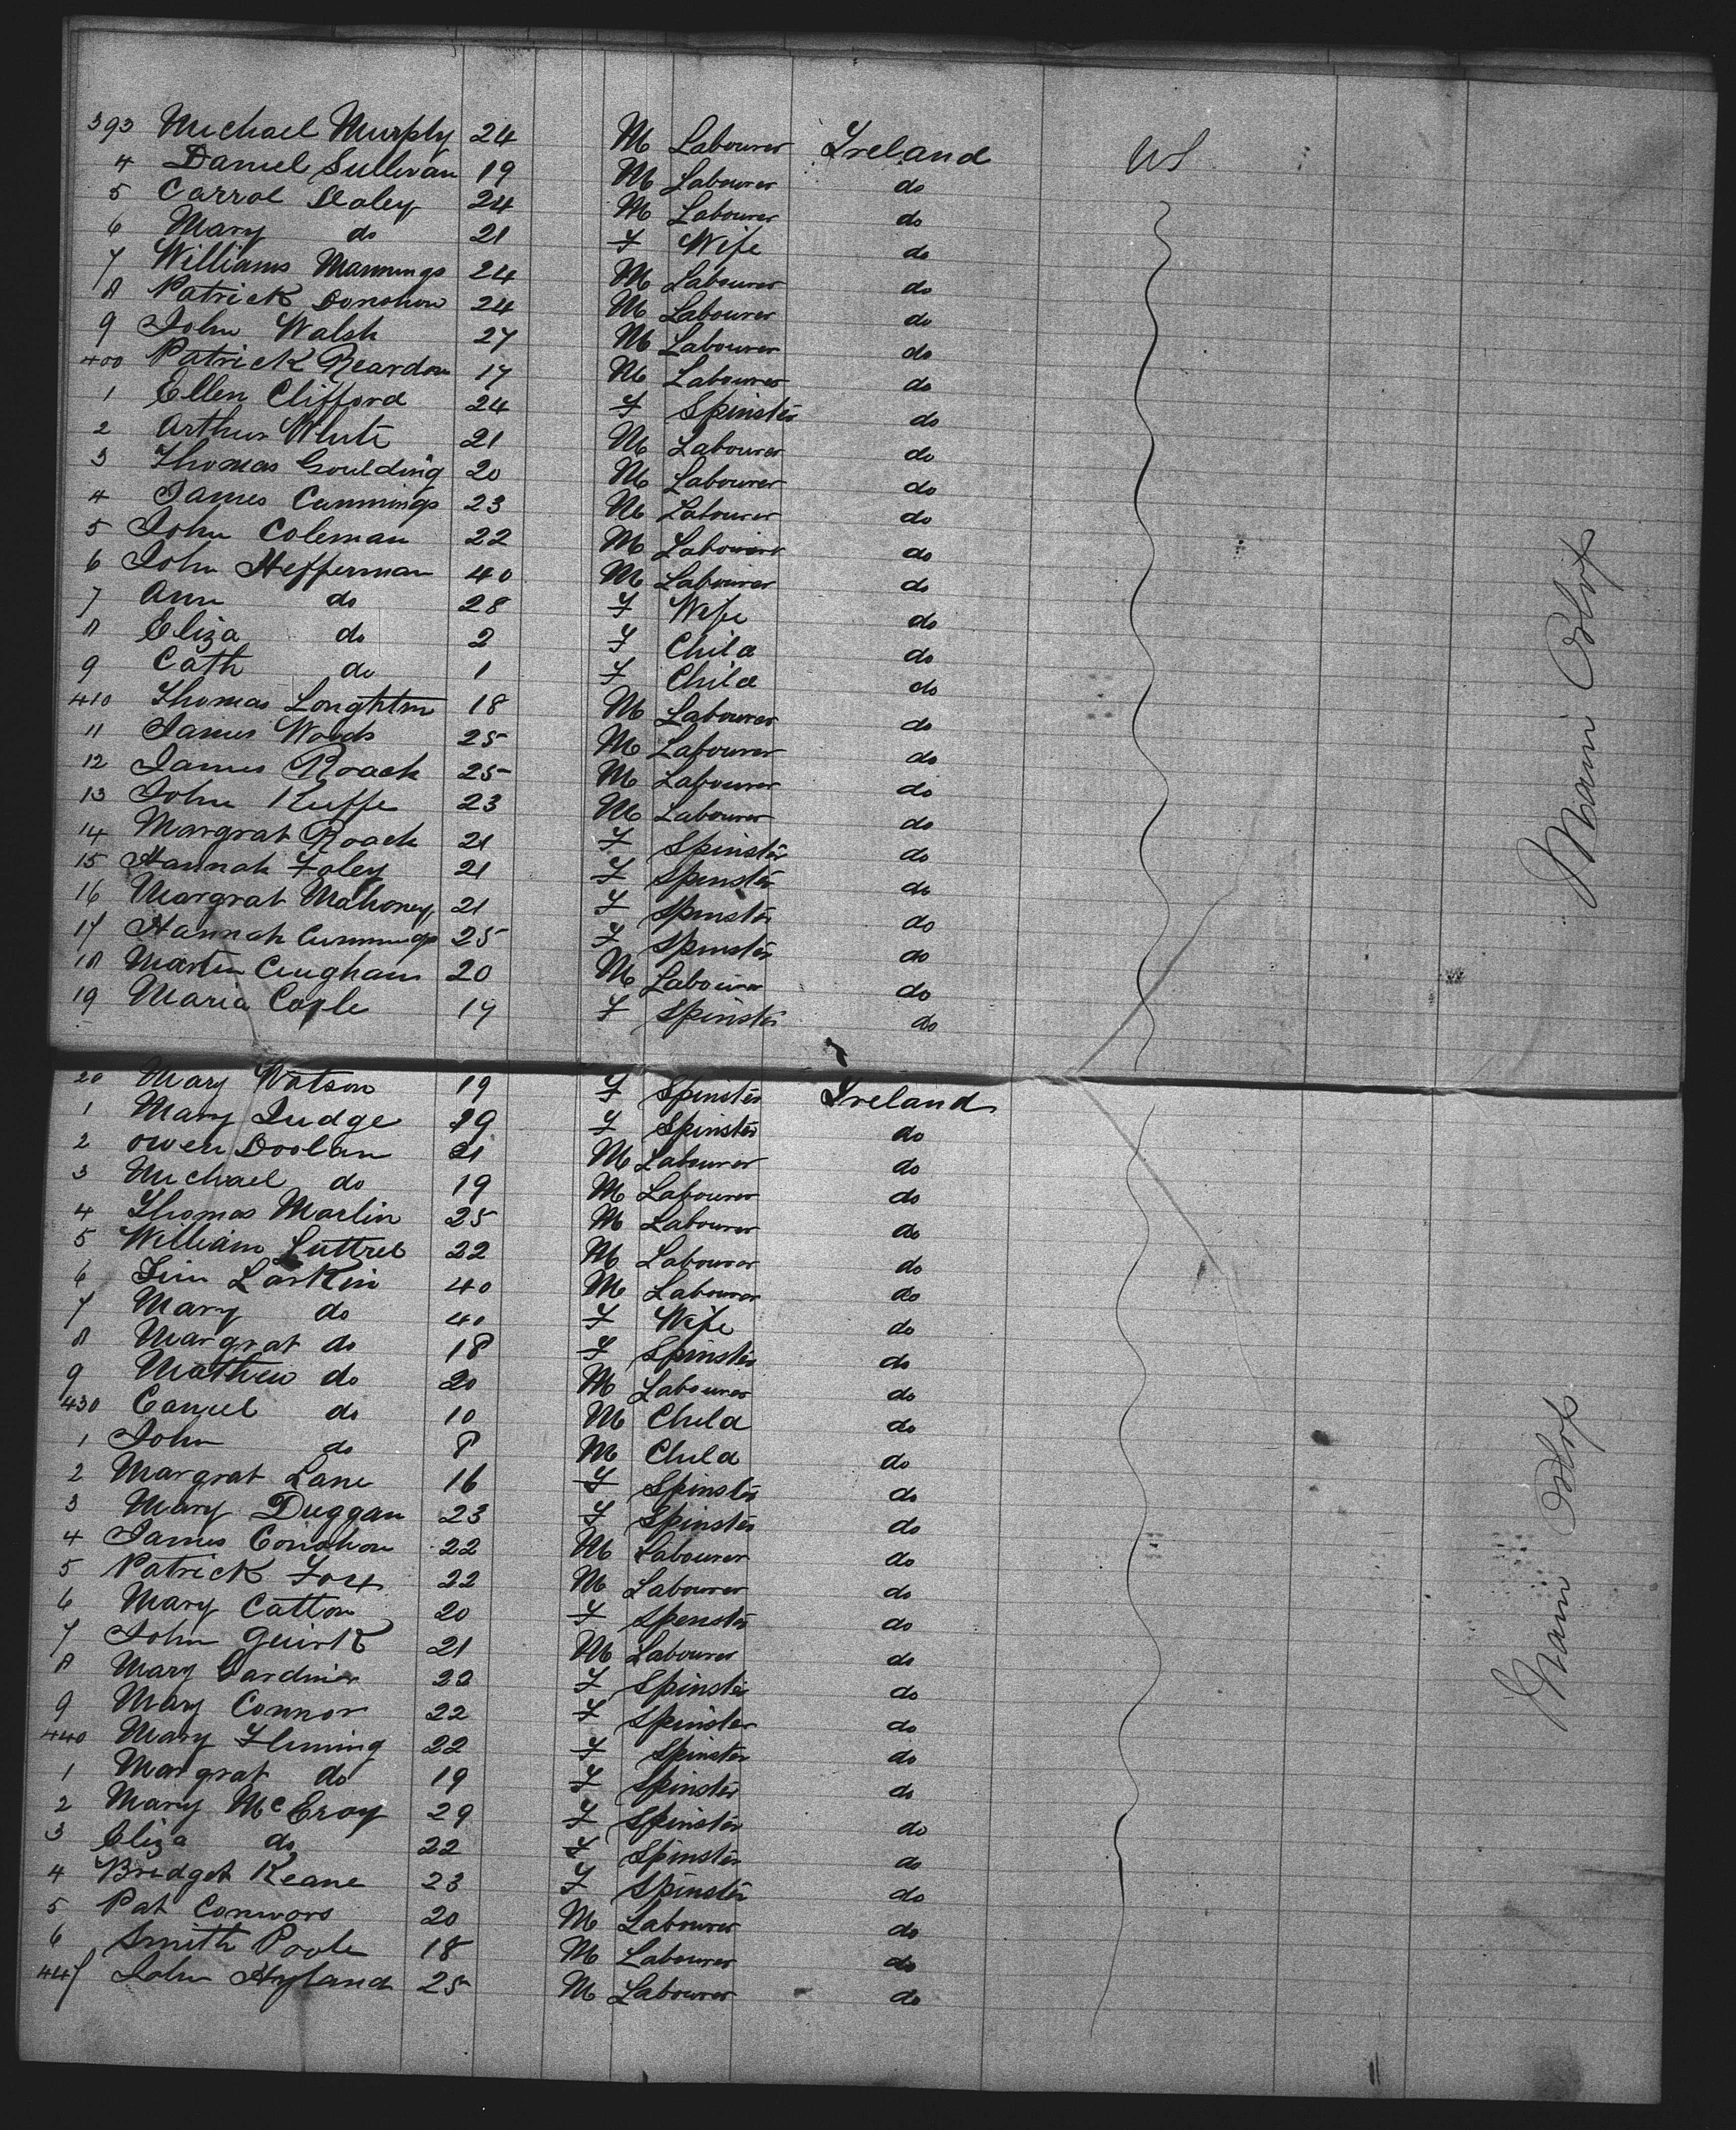 393 Michael Murphy 24 M Labourer Ireland US
4 Daniel Sullivan 19 M Labourer do
5 Carrol Daley 24 M Labourer do
6 Mary do 21 F Wife do
7 Williams Mannings 24 M Labourer do
8 Patrick Donohou 24 M Labourer do
9 John Walsh 27 M Labourer do
400 Patrick Reardon 17 M Labourer do
1 Ellen Clifford 24 F Spinster do
2 Arthur White 21 M Labourer do
3 Thomas Goulding 20 M Labourer do
4 James Cummings 23 M Labourer do
5 John Coleman 22 M Labourer do
6 John Hefferman 40 M Labourer do
7 Ann do 28 F Wife do
8 Eliza do 2 F Child do
9 Cath do 1 F Child do
410 Thomas Loughton 18 M Labourer do
11 James Woods 25 M Labourer do
12 James Roach 25 M Labourer do
13 John 23 M Labourer do
14 Margrat Roach 21 F Spinster do
15 Hannah Foley 21 F Spinster do
16 Margrat Mahoney 21 F Spinster do
17 Hannah Cummings 25 F Spinster do
18 Martin 20 M Labourer do
19 Maria 17 F Spinster do
20 Mary Watson 19 F Spinster Ireland
1 Mary Judge 19 F Spinster do
2 Owen Doolan 21 M Labourer do
3 Michael do 19 M Labourer do
4 Thomas Marlin 25 M Labourer do
5 William Luttrel 22 M Labourer do
6 Jim Larkin 40 M Labourer do
7 Mary do 40 F Wife do
8 Margrat do 18 F Spinster do
9 Mathew do 20 M Labourer do
430 do 10 M Child do
1 John do 8 M Child do
2 Margrat Lane 16 F Spinster do
3 Mary Duggan 23 F Spinster do
4 James 22 M Labourer do
5 Patrick Fox 22 M Labourer do
6 Mary Catton 20 F Spinster do
7 John Quirk 21 M Labourer do
8 Mary Gardiner 22 F Spinster do
9 Mary Connor 22 F Spinster do
440 Mary Fleming 22 F Spinster do
1 Margrat do 19 F Spinster do
2 Mary McEroy 29 F Spinster do
3 Eliza do 22 F Spinster do
4 Bridget Keane 23 F Spinster do
5 Pat Connors 20 M Labourer do
6 Smith Poole 18 M Labourer do
447 John Hyland 25 M Labourer do
Main
Main